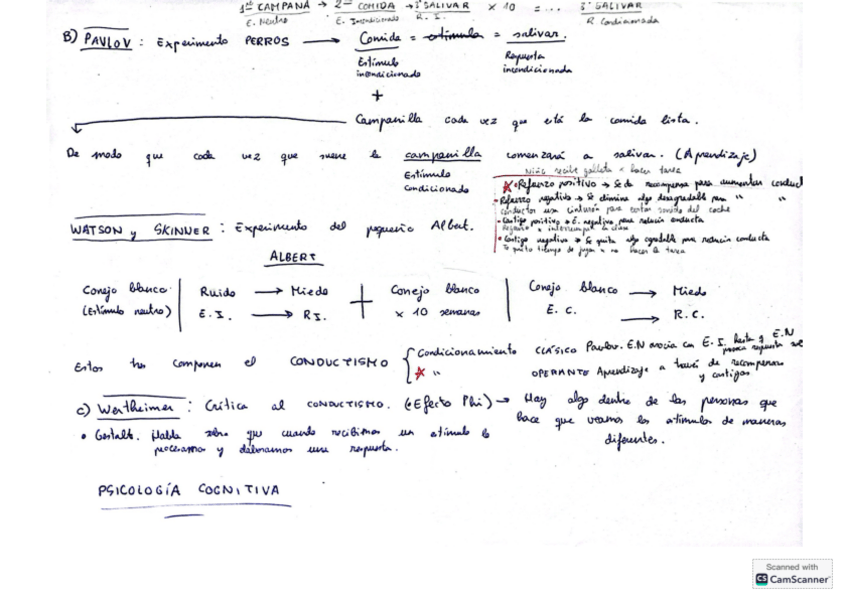 1ª CAMPANA → 2ª COMIDA → 3º SALIVAR × 10 = ... 3º SALIVAR
E. Neutro E. Incondicionado R. I. R. Condicionada
B) PAVLOV : Experimento PERROS → Comida = estímulo = salivar.
Estímulo incondicionado
Respuesta incondicionada
+
Campanilla cada vez que está la comida lista.
De modo que cada vez que suene la campanilla comenzará a salivar. (Aprendizaje)
Estímulo Condicionado
Niño recibe galleta x hacer tarea
* • Refuerzo positivo → Se da recompensa para aumentar conduct
• Refuerzo negativo → Se elimina algo desagradable para " "
conductor usa cinturón para cortar sonido del coche
• Castigo positivo → E. negativo para reducir conducta
Regaño x interrumpir la clase
• Castigo negativo → Se quita algo agradable para reducir conducta
Te quito tiempo de juego x no hacer la tarea
WATSON y SKINNER : Experimento del pequeño Albert.
ALBERT
Conejo blanco | Ruido → Miedo + Conejo blanco | Conejo blanco → Miedo
(Estímulo neutro) | E. I. → R.I. × 10 semanas | E. C. → R.C.
Estos tres componen el CONDUCTISMO
Condicionamiento CLÁSICO Pavlov. E.N asocia con E. I. hasta q E.N
* " OPERANTE Aprendizaje a través de recompensas y castigos
c) Wertheimer : Crítica al CONDUCTISMO. (•Efecto Phi) → Hay algo dentro de las personas que
hace que veamos los estímulos de maneras
diferentes.
• Gestalt. Habla sobre que cuando recibimos un estímulo lo
procesamos y elaboramos una respuesta.
PSICOLOGÍA COGNITIVA
Scanned with
CS CamScanner